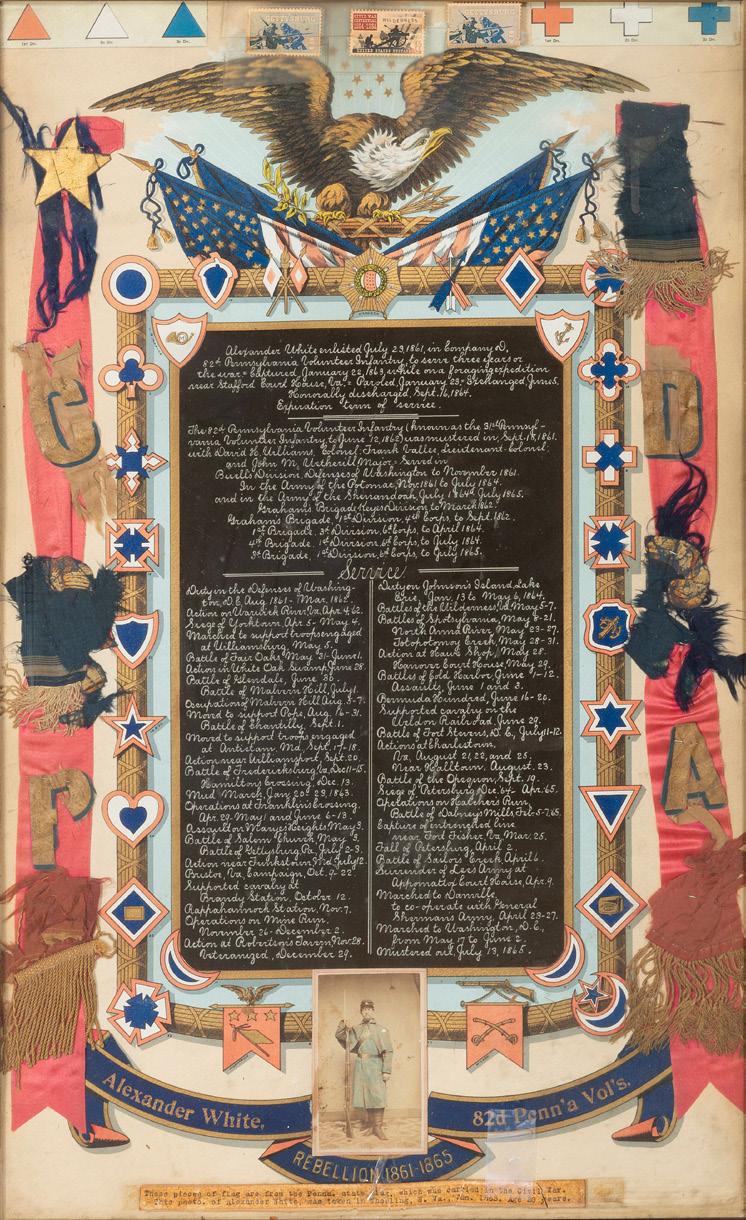 1st Div.
2d Div.
3d Div.
GETTYSBURG
CIVIL WAR CENTENNIAL
1864-1964
WILDERNESS
UNITED STATES POSTAGE
GETTYSBURG
1st Div.
2d Div.
3d Div.
G
D
r
A
Alexander White enlisted July 23, 1861, in Company D,
82d Pennsylvania Volunteer Infantry, to serve three years or
the war = Captured January 22, 1863, while on a foraging expedition
near Stafford Court House, Va. = Paroled, January 23 = Exchanged, June 5.
Honorably discharged, Sept. 16, 1864.
Expiration term of service.
The 82d Pennsylvania Volunteer Infantry (known as the 31st Pennsyl-
vania Volunteer Infantry, to June 12, 1862) was mustered in, Sept. 1861.
with David H. Williams, Colonel; Frank Vallee, Lieutenant-Colonel;
and John M. Wetherill Major = Served in
Buell's Division, Defenses of Washington to November 1861.
In the Army of the Potomac, Nov. 1861 to July 1864.
and in the Army of the Shenandoah, July 1864 to July 1865.
Graham's Brigade, Keyes Division to March 1862.
Graham's Brigade, 1st Division, 4th Corps, to Sept. 1862.
1st Brigade, 3d Division, 6th Corps, to April 1864.
4th Brigade, 1st Division, 6th Corps, to July 1864.
3d Brigade, 1st Division, 6th Corps, to July 1865.
Service
Duty in the Defenses of Washing-
ton, D.C. Aug. 1861 - Mar. 1862
Action on Warwick River, Va. Apr. 4, 62.
Siege of Yorktown, Apr. 5 - May 4.
Marched to support troops engaged
at Williamsburg, May 5.
Battle of Fair Oaks, May 31 - June 1.
Action in White Oak Swamp, June 28.
Battle of Glendale, June 30.
Battle of Malvern Hill, July 1.
Occupation of Malvern Hill, Aug. 5-7.
Moved to support Pope, Aug. 16-31.
Battle of Chantilly, Sept. 1.
Moved to support troops engaged
at Antietam, Md., Sept. 17-18.
Action near Williamsport, Sept. 20.
Battle of Fredericksburg, Va. Dec. 11-15.
Hamilton's Crossing, Dec. 13.
Mud March, Jan. 20-23, 1863.
Operations at Franklin's Crossing,
Apr. 29-May 1 and June 6-13.
Assault on Marye's Heights, May 3.
Battle of Salem Church, May 3.
Battle of Gettysburg, Pa. July 2-3.
Action near Funkstown, Md. July 12.
Bristoe, Va. Campaign, Oct. 9-22
Supported cavalry at
Brandy Station, October 12.
Rappahannock Station, Nov. 7.
Operations on Mine Run,
November 26 - December 2.
Action at Robertson's Tavern, Nov. 28.
Veteranized, December 29.
Duty on Johnson's Island, Lake
Erie, Jan. 13 to May 6, 1864.
Battles of the Wilderness, Va. May 5-7.
Battles of Spotsylvania, May 8-21.
North Anna River, May 23-27.
Totopotomoy Creek, May 28-31.
Action at Haws Shop, May 28.
Hanover Court House, May 29.
Battles of Cold Harbor, June 1-12.
Assaults, June 1 and 3.
Bermuda Hundred, June 16-26.
Supported cavalry on the
Weldon Railroad, June 29.
Battle of Fort Stevens, D.C., July 11-12.
Actions at Charlestown,
Va. August 21, 22, and 25.
Near Halltown, August 23.
Battle of the Opequon, Sept. 19.
Siege of Petersburg, Dec. 64 - Apr. 65.
Operations on Hatcher's Run,
Battle of Dabney's Mills, Feb. 5-7, 65.
Capture of entrenched line
near Fort Fisher, Va. Mar. 25.
Fall of Petersburg, April 2.
Battle of Sailor's Creek, April 6.
Surrender of Lee's Army at
Appomattox Court House, Apr. 9.
Marched to Danville,
to co-operate with General
Sherman's Army, April 23-27.
Marched to Washington, D.C.,
from May 17 to June 2.
Mustered out, July 13, 1865.
Alexander White,
82d Penn'a Vol's.
REBELLION 1861-1865
These pieces of flag are from the Penna. state flag, which was carried in the Civil War.
This photo. of Alexander White, was taken in Wheeling, W. Va., Jan. 1863. Age 20 years.